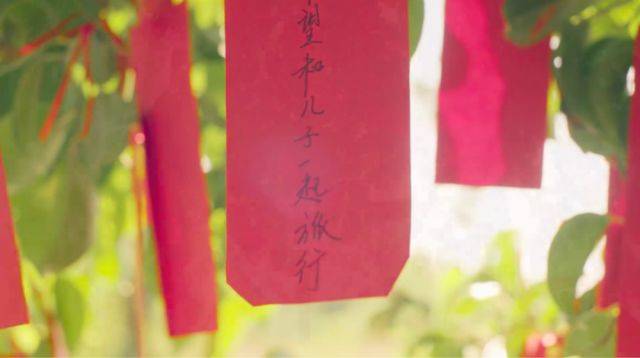 望和儿子一起旅行